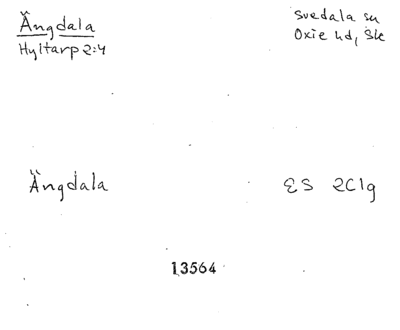 Ängdala
Hyltarp 2:4
Svedala sn
Oxie hd, Sk
Ängdala
ES 2C1g
13564